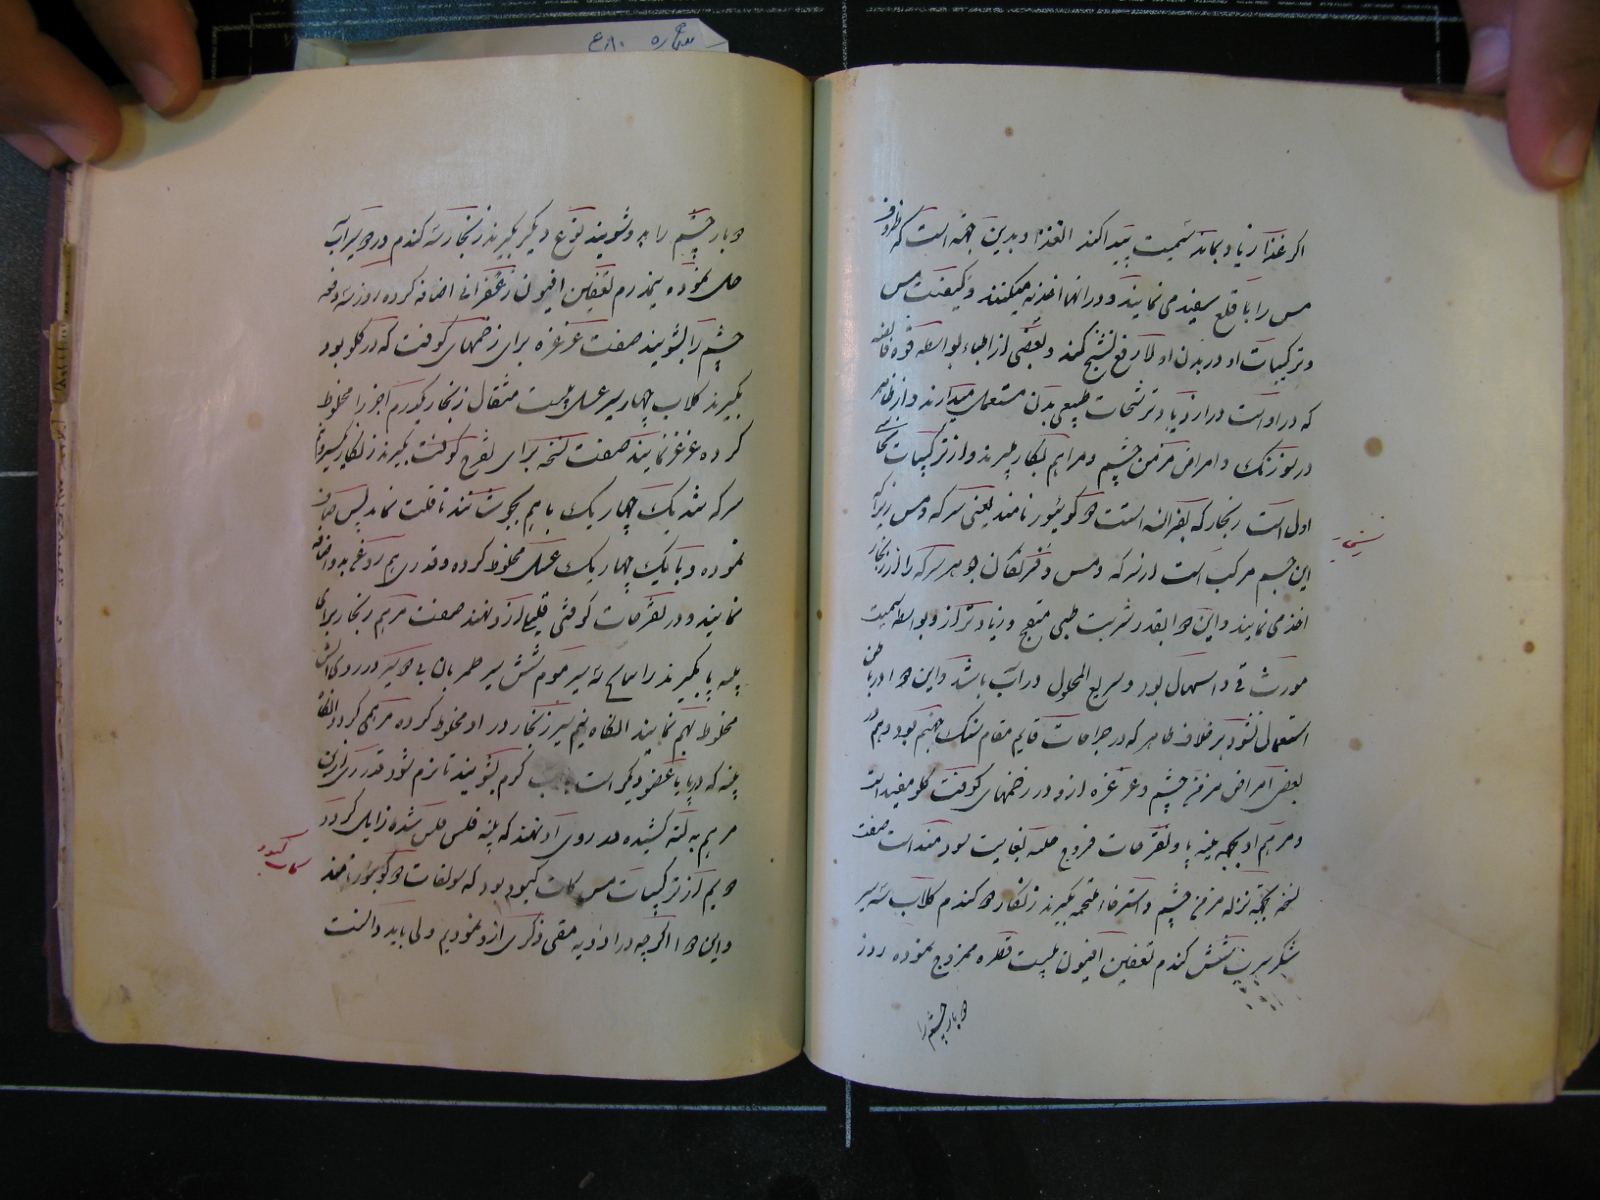 شماره ۸۰ع
اکر غذا زیاد بماند سمیت پیدا کند الغذا و بدین جهة است که ظروف
مس را با قلع سفید می نمایند و در انها اغذیه میکنند و کیفیت مس
و ترکیبات او در بدن اولا رفع تشنج کند و بعضی از اطباء بواسطه قوه قابضه
که در او است در ازدیاد ترشحات طبیعی بدن مستعمل میدارند و از ظاهر
در سوزنک و امراض مزمن چشم و مراهم بکار میبرند و از ترکیبات نحاسی
اول است زنجار که بفرانسه استت ده کوئیور نامند یعنی سرکه و مس زیرا که
این جسم مرکب است از سرکه و مس و فرنکان جوهر سرکه را از زنجار
زنجار
اخذ می نمایند و این دوا بقدر شربت طبی متهوع و زیادتر از او بواسطه سمیت
مورث قی و اسهال بود و سریع المحلول در آب باشد و این دوا در باطن
استعمال نشود بر خلاف ظاهر که در جراحات قایم مقام سنک جهنم بود و هم در
بعض امراض مزمن چشم و غرغره از او در زخمهای کوفت کلو مفید است
و مرهم او بجهة پینه پا و تقرحات فروج حلمه بغایت سودمند است صفت
نسخه بجهة نزله مزمن چشم و استرخاء ملتحمه بکیرند زنکار ده کندم کلاب سه سیر
شکر سرب شش کندم تعفین افیون بیست قطره ممزوج نموده روز
ده بار چشم را
ده بار چشم را بدو شویند نوع دیکر بکیرند زنجار سه کندم در ده سیر آب
حل نموده نیمدرم تعفین افیون زعفرانی اضافه کرده روز سه دفعه
چشم را بشویند صفت غرغره برای زخمهای کوفت که در کلو بود
بکیرند کلاب چهار سیر عسل بیست مثقال زنجار یکدرم اجزا را مخلوط
کرده غرغره نمایند صفت نسخه برای تقرح کوفت بکیرند زنکار یکسیر و نیم
سرکه سه یک چهار یک با هم بجوشانند تا قلت نماید پس صاف
نموده و با یک چهار یک عسل مخلوط کرده و قدری هم روغن بدو اضافه
نمایند و در تقرحات کوفتی فلیح از او نهند صفت مرهم زنجار برای
پینه پا بکیرند راسماج سه سیر موم شش سیر صمر بان بی ده سیر در روی آتش
مخلوط بهم نمایند انکاه نیم سیر زنجار در او مخلوط کرده مرهمی کردد انکاه
پینه که در پا یا عضو دیکر است باب کرم بشویند تا نرم شود قدری از این
مرهم به کته کشیده در روی او نهند که پینه فلس فلس شده زایل کردد
دویم از ترکیبات مس کات کبود بود که سولفات ده کوئیور نامند
کات کبود
و این دوا اکر چه در ادویه مقی ذکری از او نمودیم ولی باید دانست